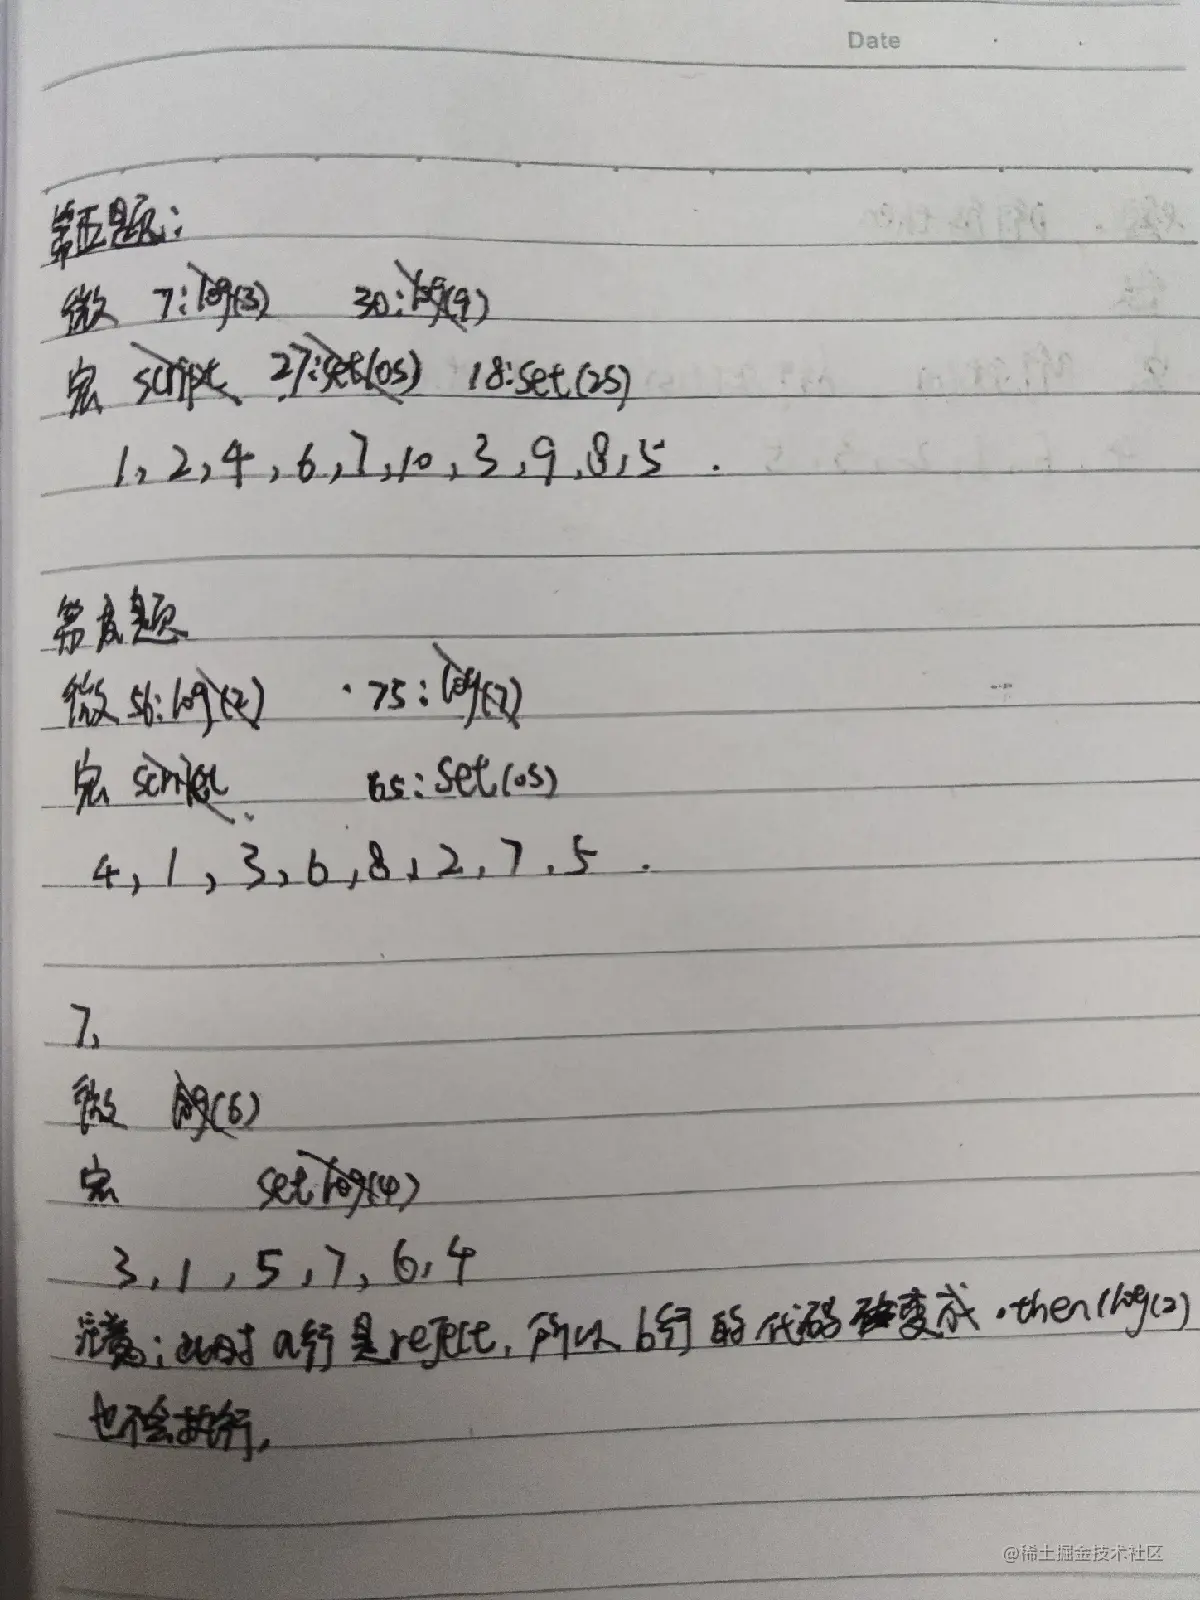 Date
第五题:
微 7:log(3) 30:log(9)
宏 script 27:set(0s) 18:set(2s)
1,2,4,6,7,10,3,9,8,5.
题
微 56:log(2) 75:log(7)
宏 script 65:set(0s)
4,1,3,6,8,2,7,5.
7.
微 log(6)
宏 set log(4)
3,1,5,7,6,4
a行是reject,所以b行的代码变成.then(log(2)
也不会执行,
@稀土掘金技术社区